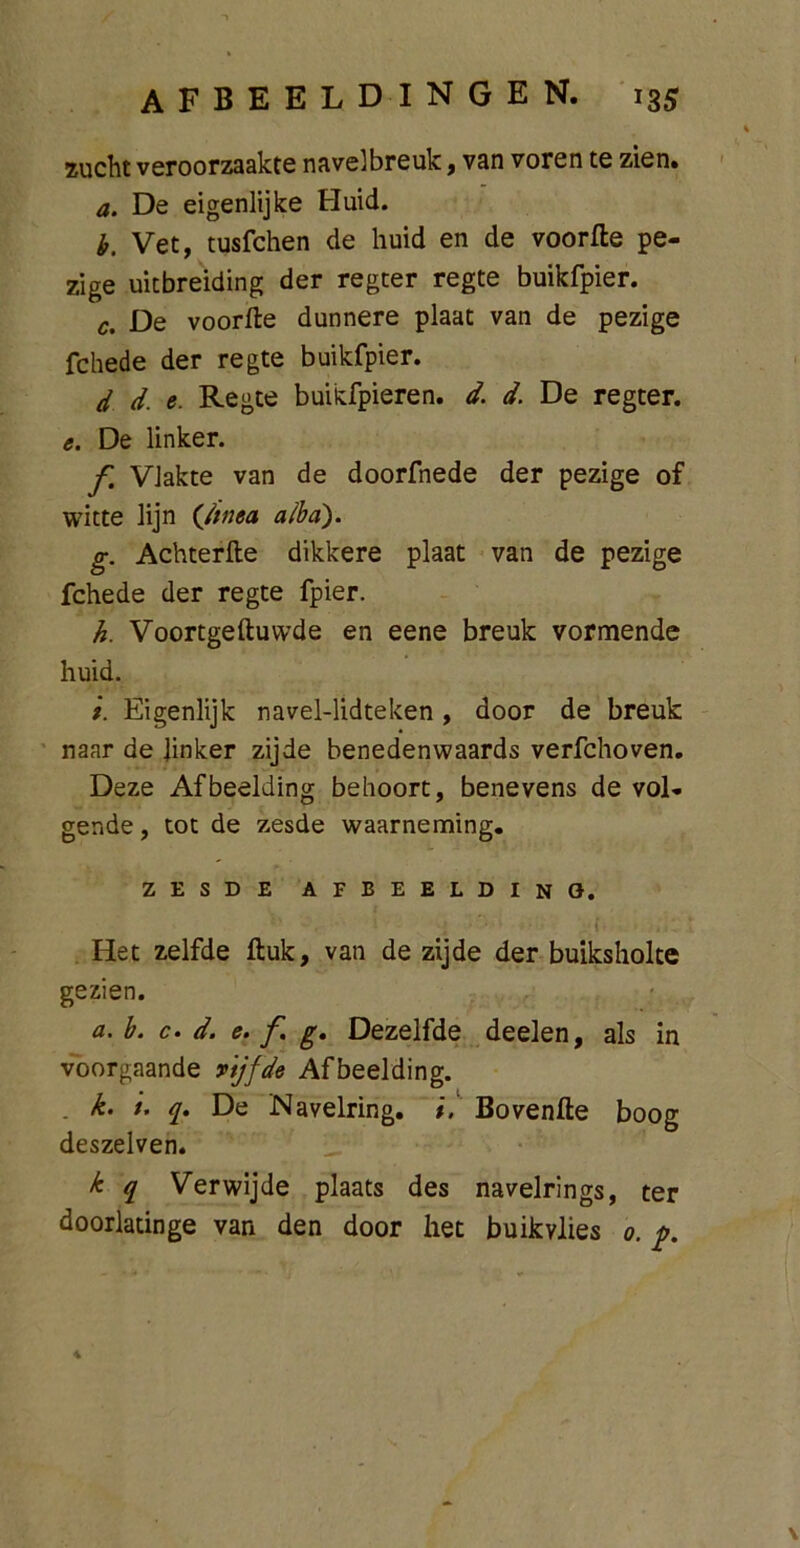 AFBEELDINGEN. 135
zucht veroorzaakte navelbreuk, van voren te zien.
a. De eigenlijke Huid.
b. Vet, tusſchen de huid en de voorſte pe-
zige uitbreiding der regter regte buikſpier.
c. De voorſte dunnere plaat van de pezige
ſchede der regte buikſpier.
d d. e. Regte buikſpieren. d. d. De regter.
e. De linker.
f. Vlakte van de doorſnede der pezige of
witte lijn (linea alba).
g. Achterſte dikkere plaat van de pezige
ſchede der regte ſpier.
h. Voortgeſtuwde en eene breuk vormende
huid.
i. Eigenlijk navel-lidteken, door de breuk
naar de linker zijde benedenwaards verſchoven.
Deze Afbeelding behoort, benevens de vol-
gende, tot de zesde waarneming.
ZESDE AFBEELDING.
Het zelfde ſtuk, van de zijde der buiksholte
gezien.
a. b. c. d. e. f. g. Dezelfde deelen, als in
voorgaande vijfde Afbeelding.
k. i. q. De Navelring. i. Bovenſte boog
deszelven.
k q Verwijde plaats des navelrings, ter
doorlatinge van den door het buikvlies o. p.